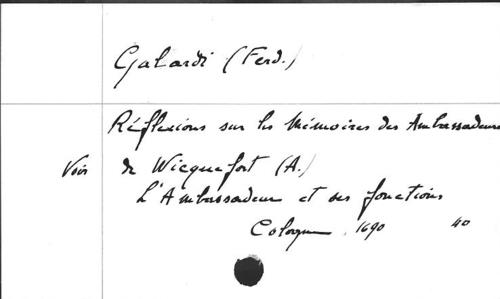 Galardi (Ferd.)
Réflexions sur les Mémoires des Ambassadeurs
Voir de Wicquefort (A.)
L'Ambassadeur et ses fonctions
Cologne, 1690 4o